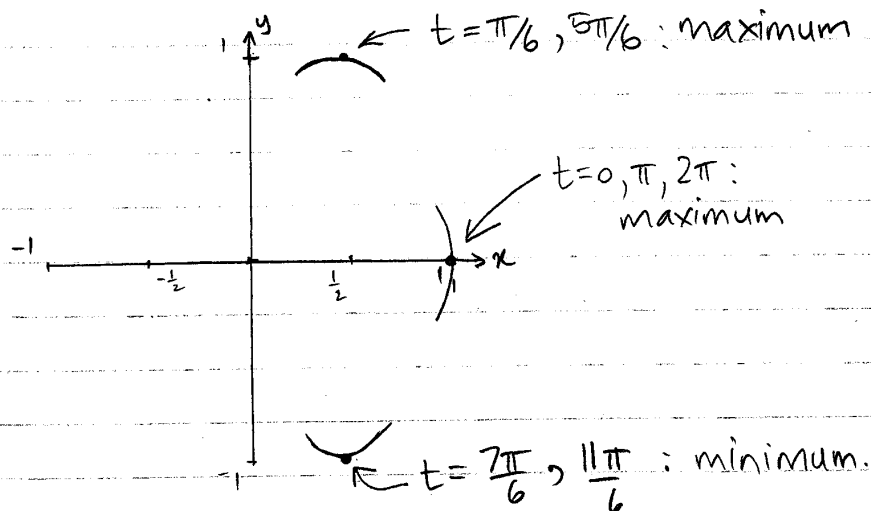 y
1
t=π/6, 5π/6 : maximum
t=0, π, 2π :
maximum
-1
-1/2
1/2
1
1
x
-1
t = 7π/6, 11π/6 : minimum.